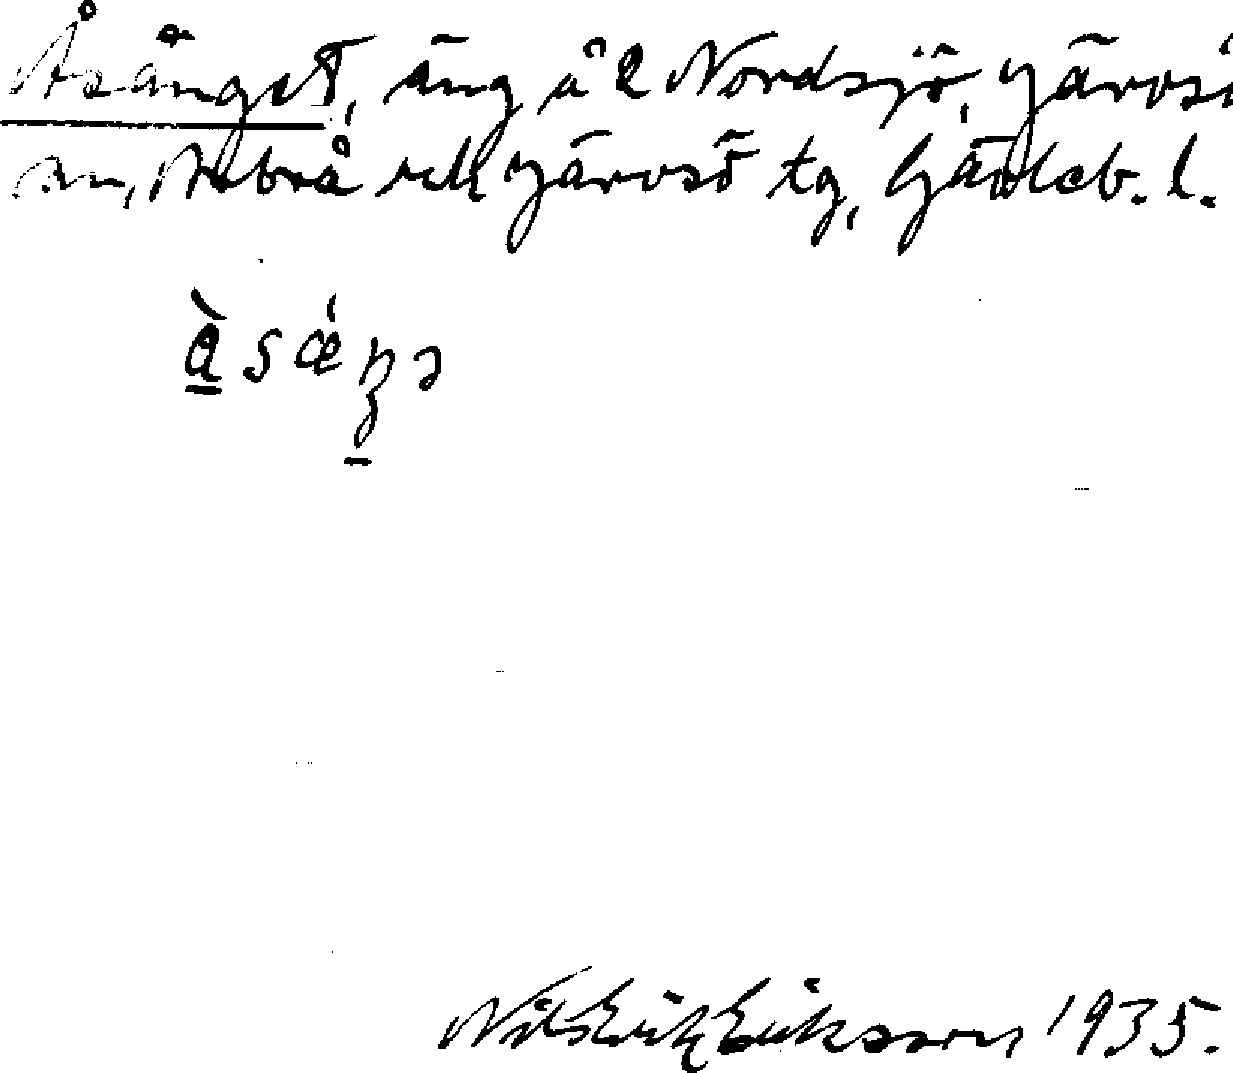 Åsänget, äng å 2 Nordsjö, Järvsö
sn, Arbrå och Järvsö tg, Gävleb. l.
å̀sǽŋə
Nils Erik Eriksson 1935.